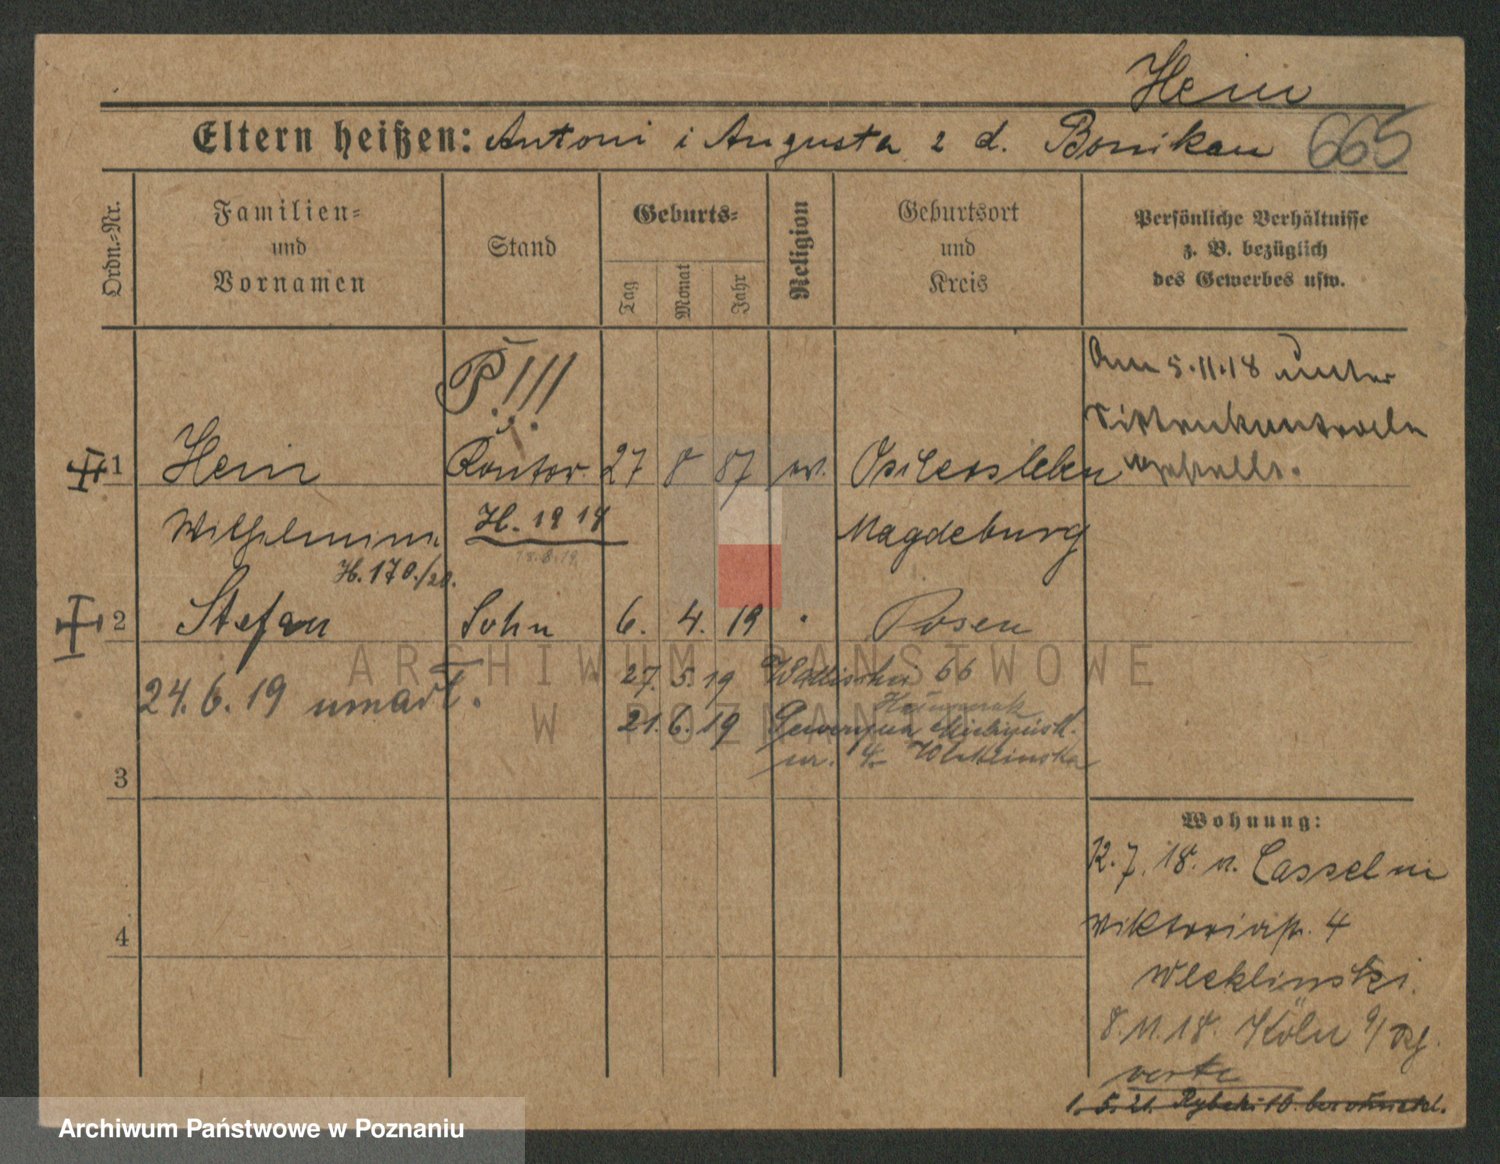 Hein
Eltern heißen: Antoni i Augusta z d. Bonikau 665
Ordn.-Nr.
Familien-
und
Vornamen
Stand
Geburts-
Tag
Monat
Jahr
Religion
Geburtsort
und
Kreis
Persönliche Verhältnisse
z. B. bezüglich
des Gewerbes usw.
P.!!!
Am 5.11.18 unter
Sittenkontrolle
gestellt.
1 Hein Kontor. 27 8 87 ev. Oschersleben
Wilhelmine H. 1918 Magdeburg
18.8.19
H. 170./20.
2 Stefan Sohn 6. 4. 19 Posen
24.6.19 umarł.
27. 5. 19 66
21. 6. 19 Seweryna
nr. 4 Wleklinska
3
4
Wohnung:
12.7.18. n. Cassel
Viktoriastr. 4
Wleklinski.
8.11.18. Köln a/Rh.
verte
1. 5. 21. Rybaki 10.
ARCHIWUM PAŃSTWOWE
W POZNANIU
Archiwum Państwowe w Poznaniu